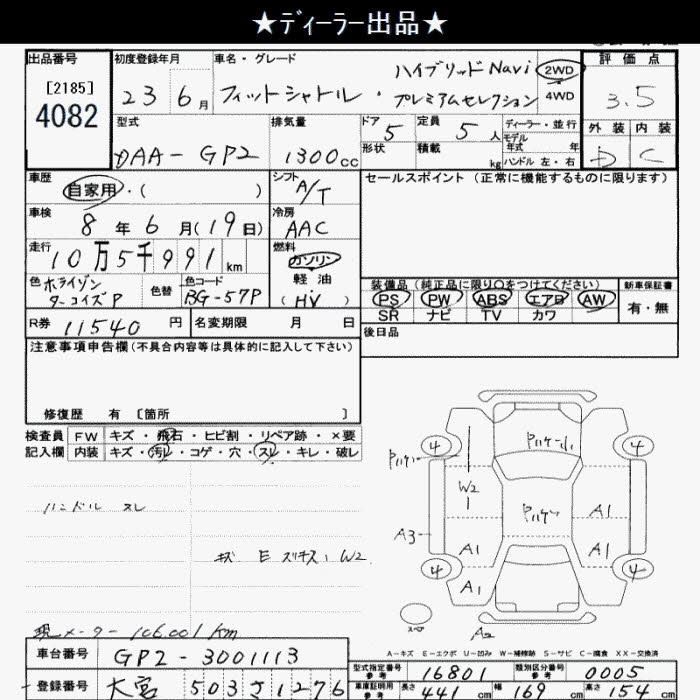 ★ディーラー出品★
出品番号
[2185]
4082
初度登録年月
23 6月
車名・グレード
ハイブリッドNavi
フィットシャトル・プレミアムセレクション
2WD
4WD
評価点
3.5
外装 内装
D C
型式
DAA-GP2
排気量
1300cc
ドア
5
定員
5人
形状
積載
kg
ディーラー・並行
モデル
年式 年
ハンドル 左・右
車歴
自家用・( )
シフト
A/T
セールスポイント (正常に機能するものに限ります)
車検
8年6月(19日)
冷房
AAC
走行
10万5千991km
燃料
ガソリン
軽油
(HV)
色
ホライゾンターコイズP
色替
色コード
BG-57P
装備品 (純正品に限り〇をつけてください)
PS PW ABS エアB AW
SR ナビ TV カワ
新車保証書
有・無
R券 11540円
名変期限 月 日
後日品
注意事項申告欄 (不具合内容等は具体的に記入して下さい)
修復歴 有 [箇所 ]
検査員
記入欄
FW キズ・飛石・ヒビ割・リペア跡・×要
内装 キズ・汚レ・コゲ・穴・スレ・キレ・破レ
ハンドル スレ
W2
現メーター 106,001km
4 4
W2
A1
A3
A1 A1
4 4
A1
スペア
A2
A-キズ E-エクボ U-凹み W-補修跡 S-サビ C-腐食 XX-交換済
車台番号 GP2-3001113
登録番号 大宮 503 さ 1276
型式指定番号
参考
16801
類別区分番号
参考
0005
車庫証明用
参考
長さ 441cm 幅 169cm 高さ 154cm